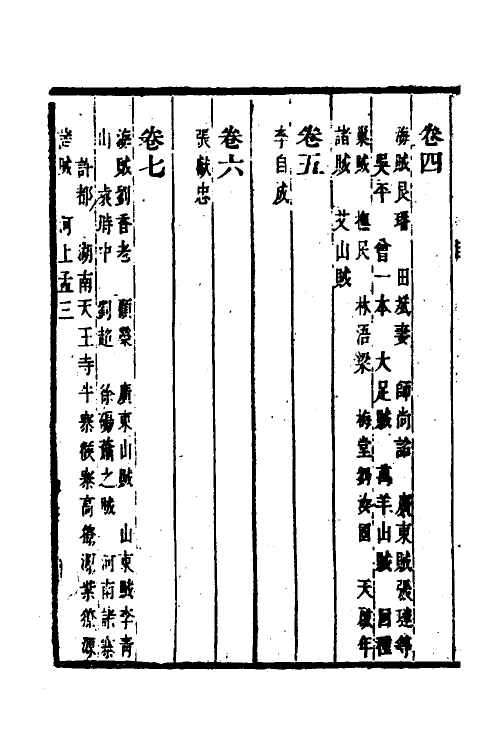 卷四
海賊艮璠 田斌妻 師尚詔 廣東賊張璉等
吳平 曾一本 大足賊 萬羊山賊
巢賊 撫民 林浯梁 梅堂劉汝國 天啟年
諸賊 艾山賊
卷五
李自成
卷六
張獻忠
卷七
海賊劉香老 顧榮 廣東山賊 山東賊李青
山 袁時中 劉超 徐碭蕭之賊 河南諸寨
許都 湖南天王寺牛寨
諸賊 河上孟三